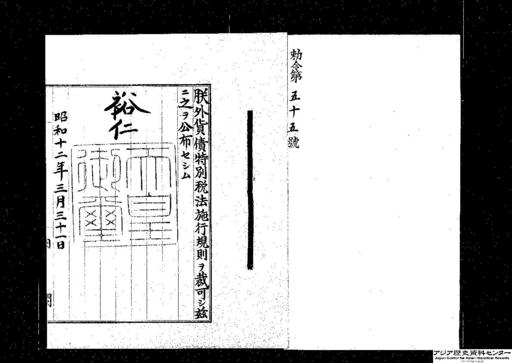 勅令第五十五號
朕外貨債特別税法施行規則ヲ裁可シ玆
ニ之ヲ公布セシム
裕仁
天皇御璽
昭和十二年三月三十一日
アジア歴史資料センター
Japan Center for Asian Historical Records